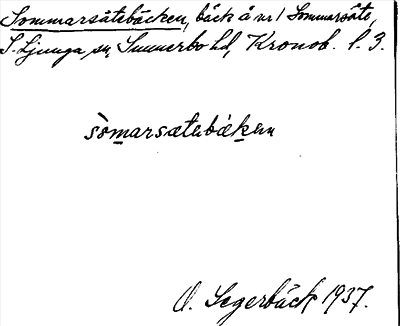 Sommarsätebäcken, bäck å nr 1 Sommarsäte,
S. Ljunga sn, Sunnerbo hd, Kronob. l. 3.
sòmarsætabækən
O. Segerbäck 1937.